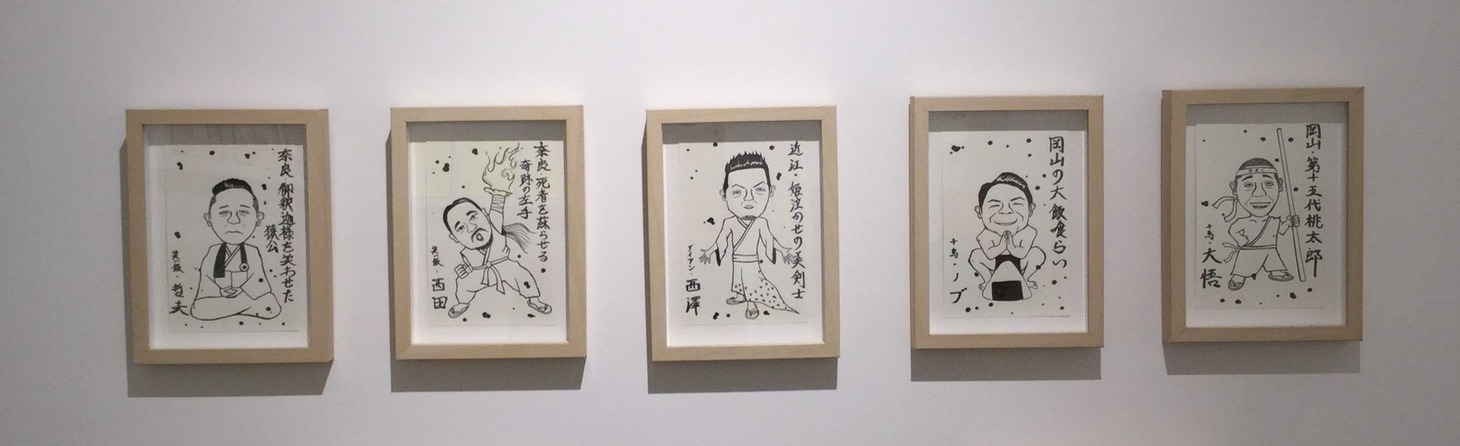 奈良・御釈迦様を笑わせた
猿公
笑い飯・哲夫
奈良・死者を蘇らせる
奇跡の左手
笑い飯・西田
近江・姫泣かせの美剣士
ダイアン・西澤
岡山の大飯食らい
千鳥・ノブ
岡山・第十五代桃太郎
千鳥・大悟